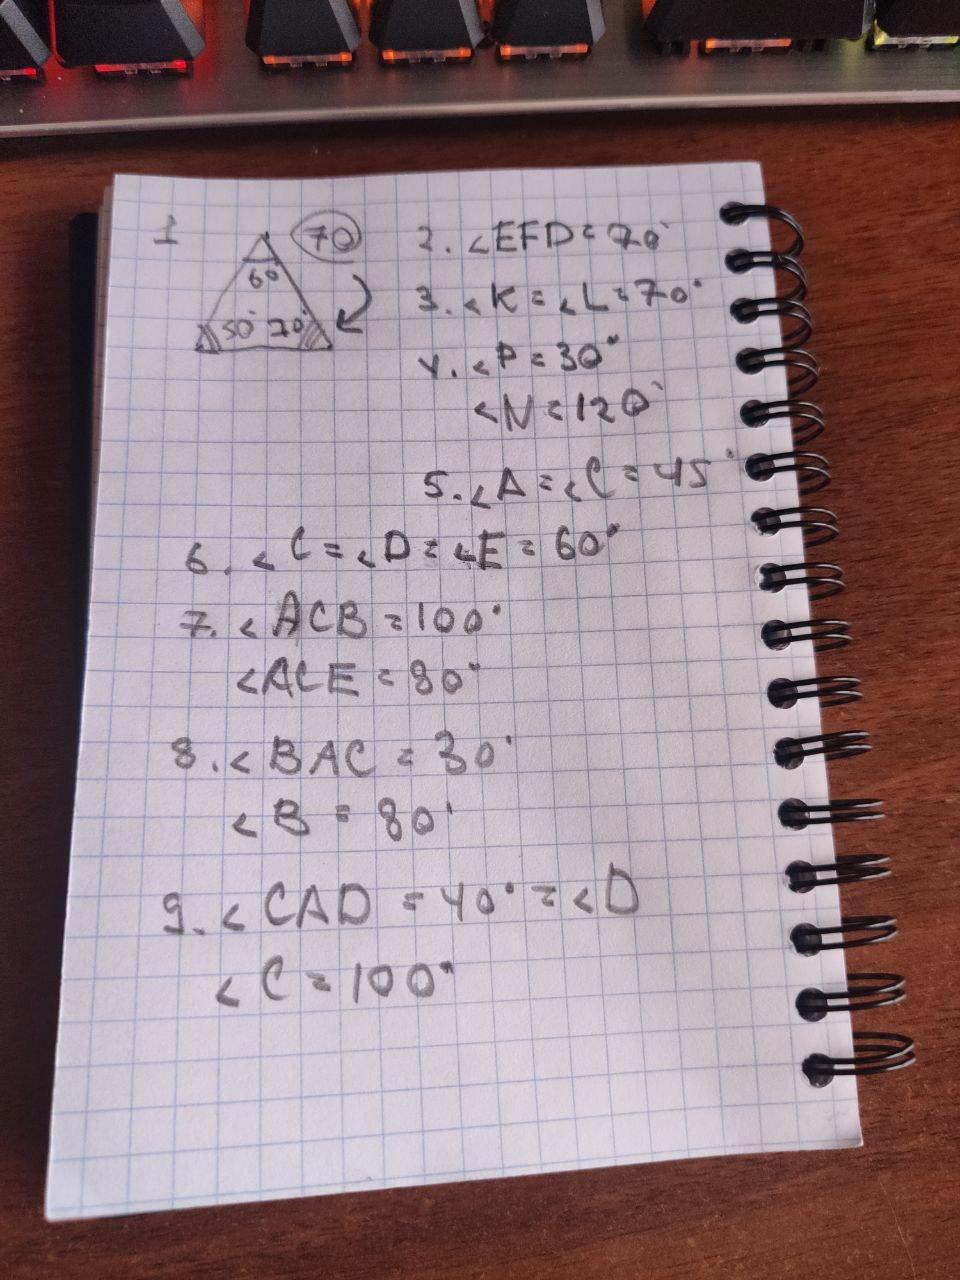 1
70
60°
50° 70°
2. <EFD = 70°
3. <K = <L = 70°
4. <P = 30°
<N = 120°
5. <A = <C = 45°
6. <C = <D = <E = 60°
7. <ACB = 100°
<ACE = 80°
8. <BAC = 30°
<B = 80°
9. <CAD = 40° = <D
<C = 100°